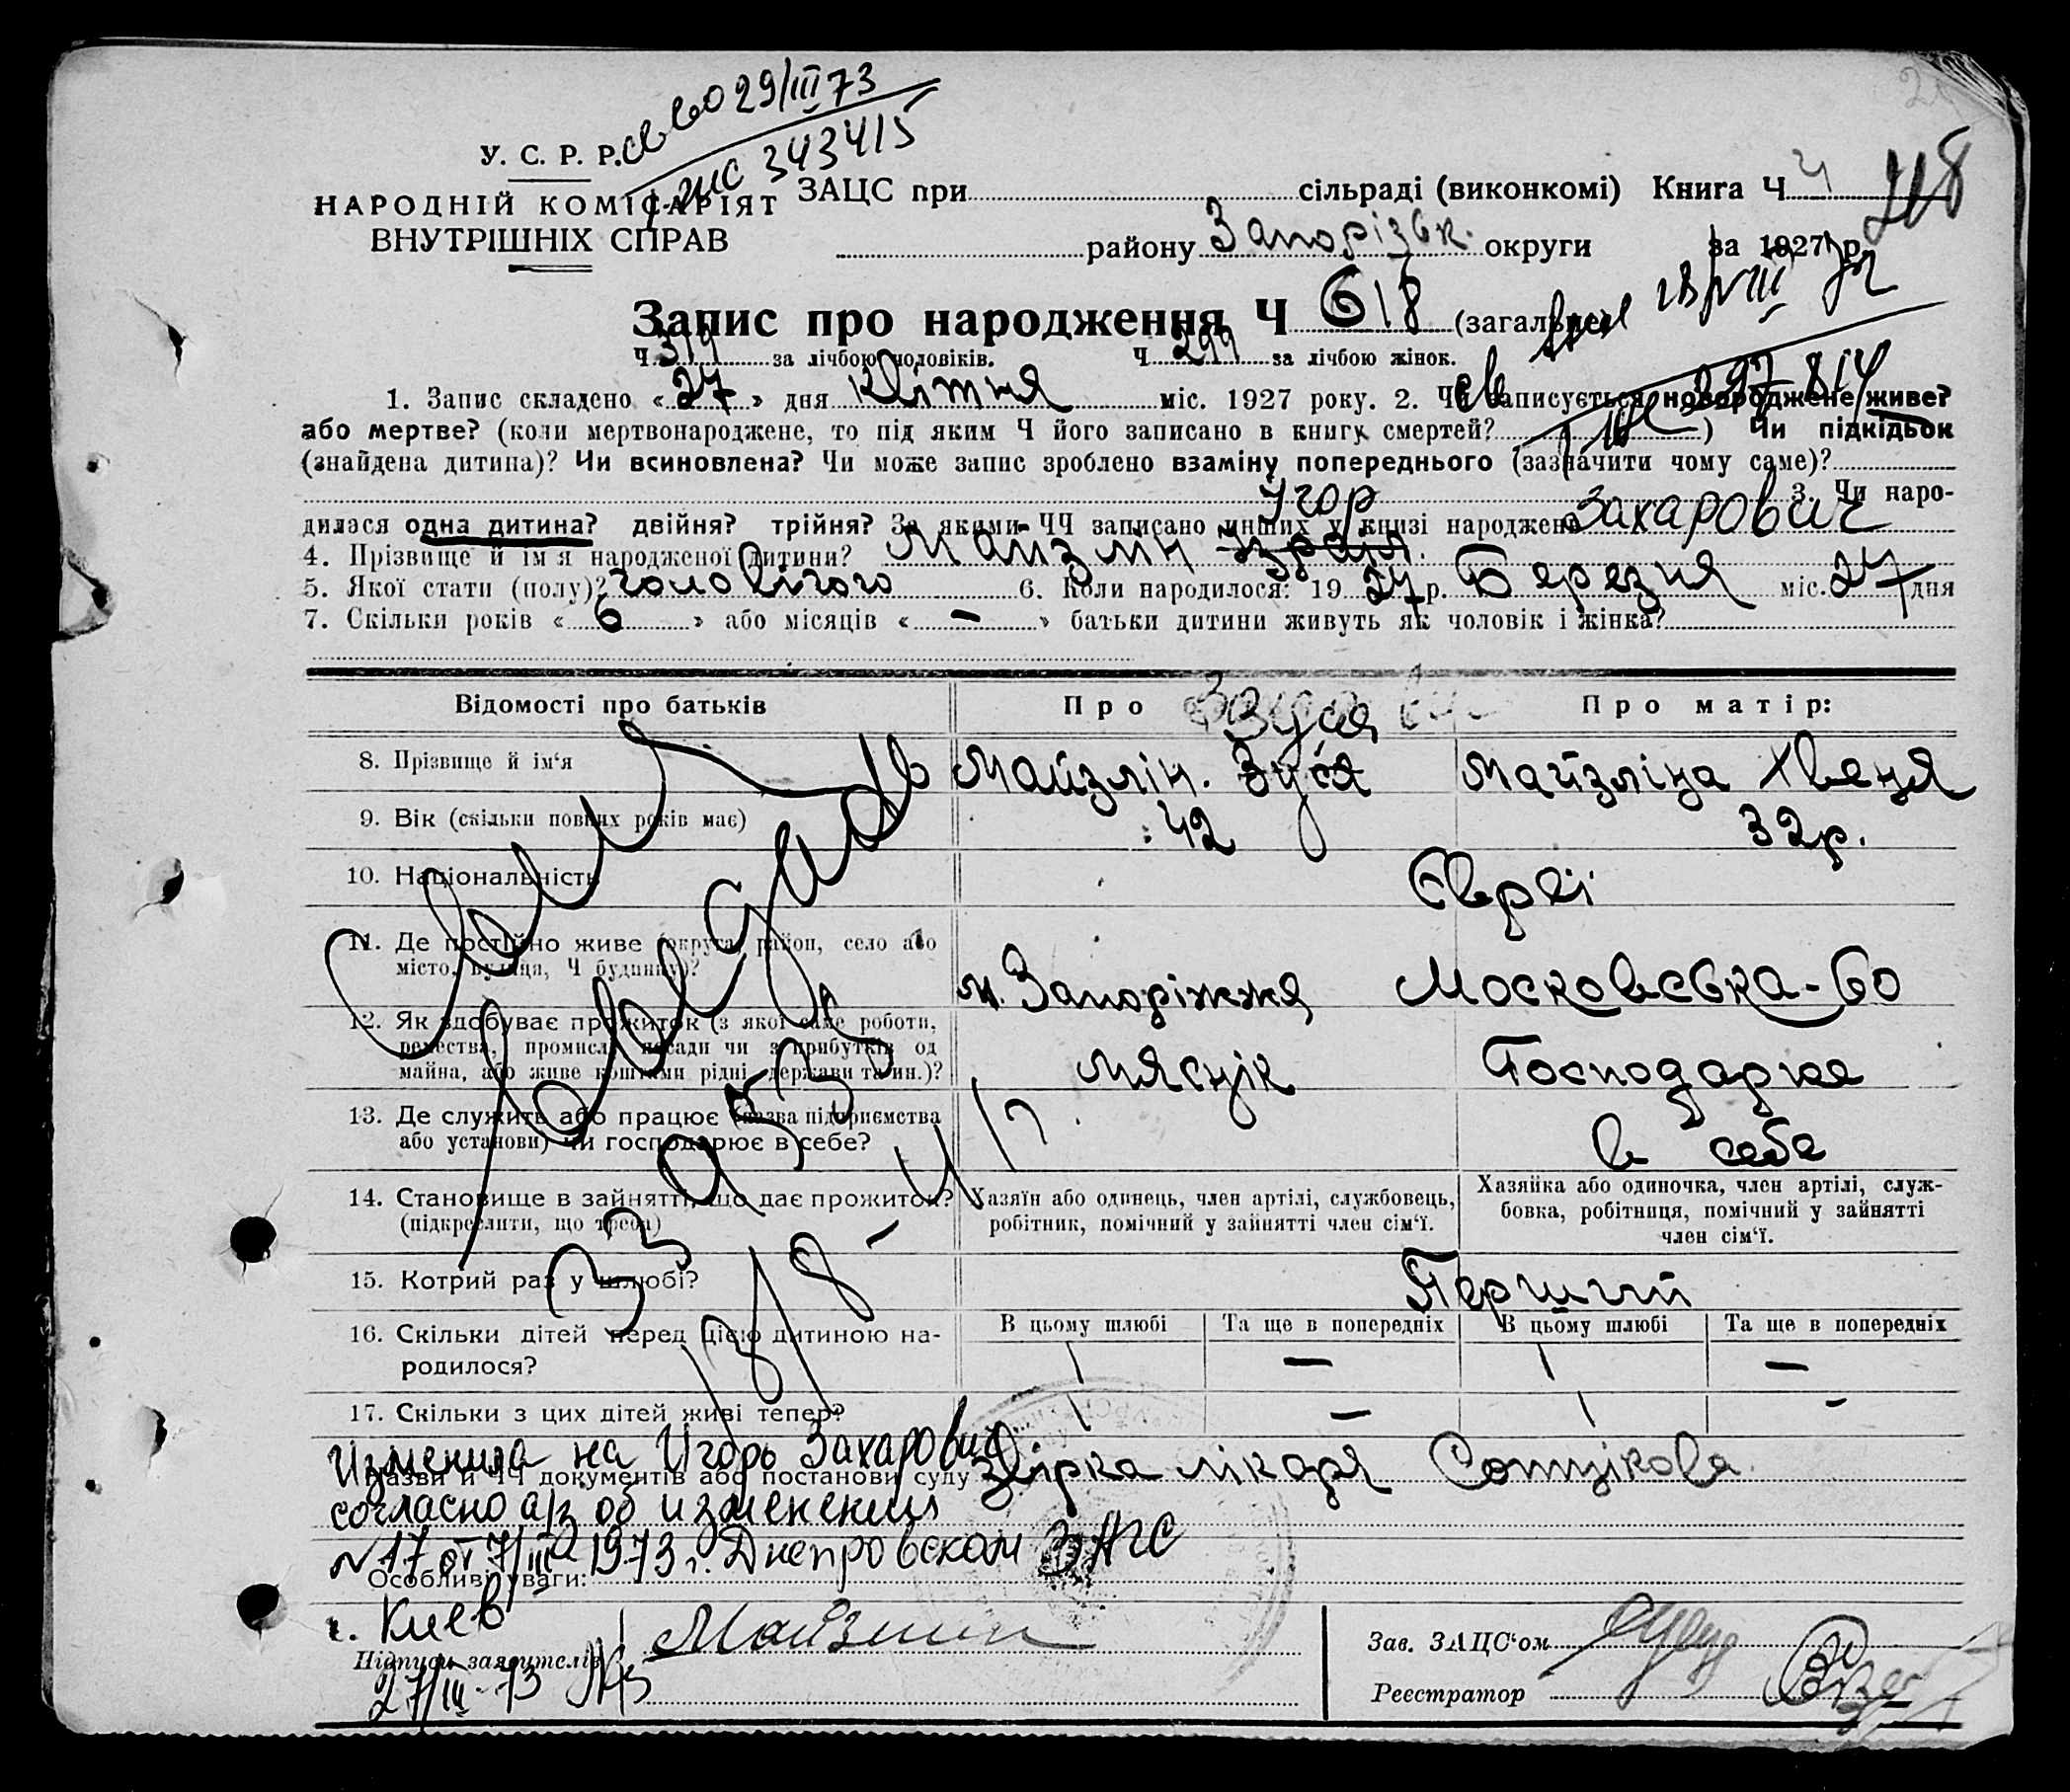 29/III 73
343415
У. С. Р. Р.
НАРОДНІЙ КОМІСАРІЯТ
ВНУТРІШНІХ СПРАВ
ЗАЦС при сільраді (виконкомі) Книга Ч 4
району Запорізьк. округи за 1927 р.
Запис про народження Ч 618 (загальне)
Ч. 319 за лічбою чоловіків. Ч. 299 за лічбою жінок.
1. Запис складено «27» дня Квітня міс. 1927 року. 2. Чи записується новороджене живе?
або мертве? (коли мертвонароджене, то під яким Ч його записано в книгу смертей? ) Чи підкідьок
(знайдена дитина)? Чи всиновлена? Чи може запис зроблено взаміну попереднього (зазначити чому саме)?
Угор 3. Чи наро-
дилася одна дитина? двійня? трійня? За якими ЧЧ записано инших у книзі народжень Захарович
4. Прізвище й ім'я народженої дитини? Майзлін Ізраїл.
5. Якої стати (полу)? чоловічого 6. Коли народилося: 1927 р. Березня міс. 27 дня
7. Скільки років «6» або місяців «-» батьки дитини живуть як чоловік і жінка?
Відомості про батьків Про Зуся Про матір:
8. Прізвище й ім'я Майзлін. Зуся Майзліна Хвеня
9. Вік (скільки повних років має) 42 32 р.
10. Національність Євреї
11. Де постійно живе (округа, район, село або
місто, вулиця, Ч будинку)? м. Запоріжжя Московська-60
12. Як здобуває прожиток (з якої саме роботи,
ремества, промисла, посади чи з прибутків од
майна, або живе коштами рідні, держави та ин.)? мяснік Господарка
13. Де служить або працює (назва підприємства
або установи) чи господарює в себе? в себе
14. Становище в зайнятті, що дає прожиток?
(підкреслити, що треба)
Хазяїн або одинець, член артілі, службовець,
робітник, помічний у зайнятті член сім'ї.
Хазяйка або одиночка, член артілі, служ-
бовка, робітниця, помічний у зайнятті
член сім'ї.
15. Котрий раз у шлюбі? Перший
16. Скільки дітей перед цією дитиною на-
родилося?
В цьому шлюбі Та ще в попередніх В цьому шлюбі Та ще в попередніх
1 — 1 —
17. Скільки з цих дітей живі тепер? 1 — 1 -
на Игорь Захарович
Назви й ЧЧ документів або постанови суду лікаря
согласно а/з об изменении
N 17 от 7/III 1973 г. Днепровском ЗАГС
Особливі уваги:
г. Киев
Підписи заявителів Майзлин
27/III-73
Зав. ЗАЦС'ом
Реєстратор